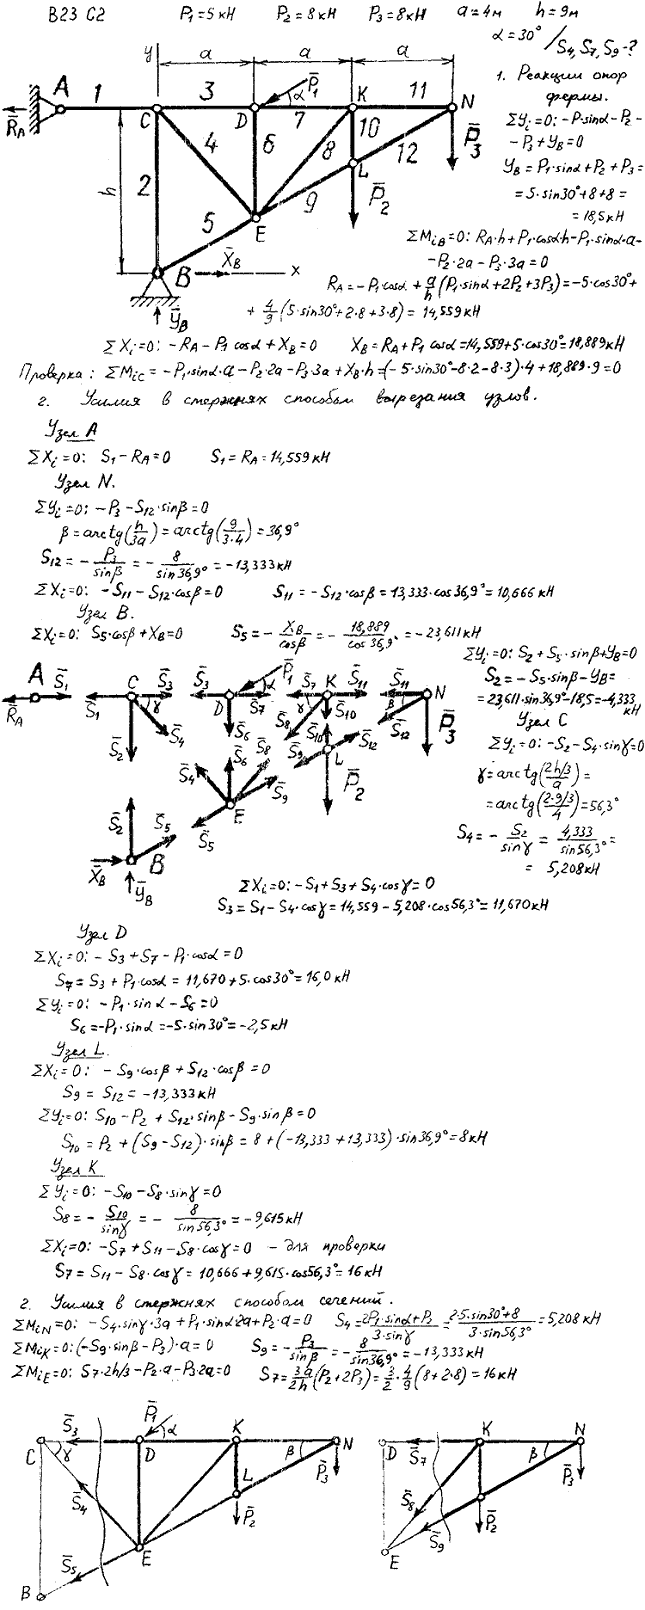 В23 С2 P₁=5кН P₂=8кН P₃=8кН a=4м h=9м
α=30° / S₄, S₇, S₉ -?
y a a a
A 1 3 D P̄₁ α K 11 N
R̄_A C 7 10
4 6 8 12 P̄₃
h 2 L
5 9 P̄₂
E
B X̄_B x
Ȳ_B
1. Реакции опор
фермы.
ΣYᵢ=0: -P·sinα-P₂-
-P₃+Y_B=0
Y_B=P₁·sinα+P₂+P₃=
=5·sin30°+8+8=
=18,5кН
ΣM_iB=0: R_A·h+P₁·cosα·h-P₁·sinα·a-
-P₂·2a-P₃·3a=0
R_A=-P₁·cosα+a/h(P₁·sinα+2P₂+3P₃)=-5·cos30°+
+4/9(5·sin30°+2·8+3·8)=14,559кН
ΣXᵢ=0: -R_A-P₁·cosα+X_B=0 X_B=R_A+P₁·cosα=14,559+5·cos30°=18,889кН
Проверка: ΣM_iC=-P₁·sinα·a-P₂·2a-P₃·3a+X_B·h=(-5·sin30°-8·2-8·3)·4+18,889·9=0
2. Усилия в стержнях способом вырезания узлов.
Узел A
ΣXᵢ=0: S₁-R_A=0 S₁=R_A=14,559кН
Узел N.
ΣYᵢ=0: -P₃-S₁₂·sinβ=0
β=arctg(h/3a)=arctg(9/3·4)=36,9°
S₁₂=-P₃/sinβ=-8/sin36,9°=-13,333кН
ΣXᵢ=0: -S₁₁-S₁₂·cosβ=0 S₁₁=-S₁₂·cosβ=13,333·cos36,9°=10,666кН
Узел B.
ΣXᵢ=0: S₅·cosβ+X_B=0 S₅=-X_B/cosβ=-18,889/cos36,9°=-23,611кН
ΣYᵢ=0: S₂+S₅·sinβ+Y_B=0
S₂=-S₅·sinβ-Y_B=
=23,611·sin36,9°-18,5=-4,333
кН
Узел C
ΣYᵢ=0: -S₂-S₄·sinγ=0
γ=arctg(2h/3/a)=
=arctg(2·9/3/4)=56,3°
S₄=-S₂/sinγ=4,333/sin56,3°=
=5,208кН
A S̄₁ C S̄₃ S̄₃ P̄₁ α S̄₇ K S̄₁₁ S̄₁₁ N
R̄_A S̄₁ γ D S̄₇ γ β
S̄₂ S̄₄ S̄₆ S̄₈ S̄₁₀ S̄₁₂ P̄₃
S̄₄ S̄₆ S̄₈ S̄₁₀ S̄₁₂
S̄₉ L
S̄₂ S̄₅ E S̄₉ P̄₂
S̄₅
X̄_B B
Ȳ_B
ΣXᵢ=0: -S₁+S₃+S₄·cosγ=0
S₃=S₁-S₄·cosγ=14,559-5,208·cos56,3°=11,670кН
Узел D
ΣXᵢ=0: -S₃+S₇-P₁·cosα=0
S₇=S₃+P₁·cosα=11,670+5·cos30°=16,0кН
ΣYᵢ=0: -P₁·sinα-S₆=0
S₆=-P₁·sinα=-5·sin30°=-2,5кН
Узел L.
ΣXᵢ=0: -S₉·cosβ+S₁₂·cosβ=0
S₉=S₁₂=-13,333кН
ΣYᵢ=0: S₁₀-P₂+S₁₂·sinβ-S₉·sinβ=0
S₁₀=P₂+(S₉-S₁₂)·sinβ=8+(-13,333+13,333)·sin36,9°=8кН
Узел K
ΣYᵢ=0: -S₁₀-S₈·sinγ=0
S₈=-S₁₀/sinγ=-8/sin56,3°=-9,615кН
ΣXᵢ=0: -S₇+S₁₁-S₈·cosγ=0 - для проверки
S₇=S₁₁-S₈·cosγ=10,666+9,615·cos56,3°=16кН
2. Усилия в стержнях способом сечений.
ΣM_iN=0: -S₄·sinγ·3a+P₁·sinα·2a+P₂·a=0 S₄=2P₁·sinα+P₂/3·sinγ=2·5·sin30°+8/3·sin56,3°=5,208кН
ΣM_iK=0: (-S₉·sinβ-P₃)·a=0 S₉=-P₃/sinβ=-8/sin36,9°=-13,333кН
ΣM_iE=0: S₇·2h/3-P₂·a-P₃·2a=0 S₇=3a/2h(P₂+2P₃)=3/2·4/9(8+2·8)=16кН
S̄₃ P̄₁ α K N
C γ D β
L P̄₃
S̄₄ P̄₂
E
S̄₅
B
D S̄₇ K N
β
P̄₃
S̄₈ P̄₂
S̄₉
E